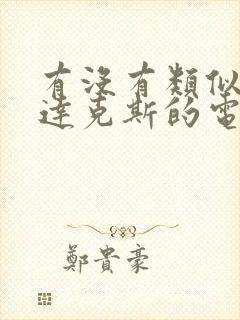 有沒有類似
達克斯的電
鄭貴豪